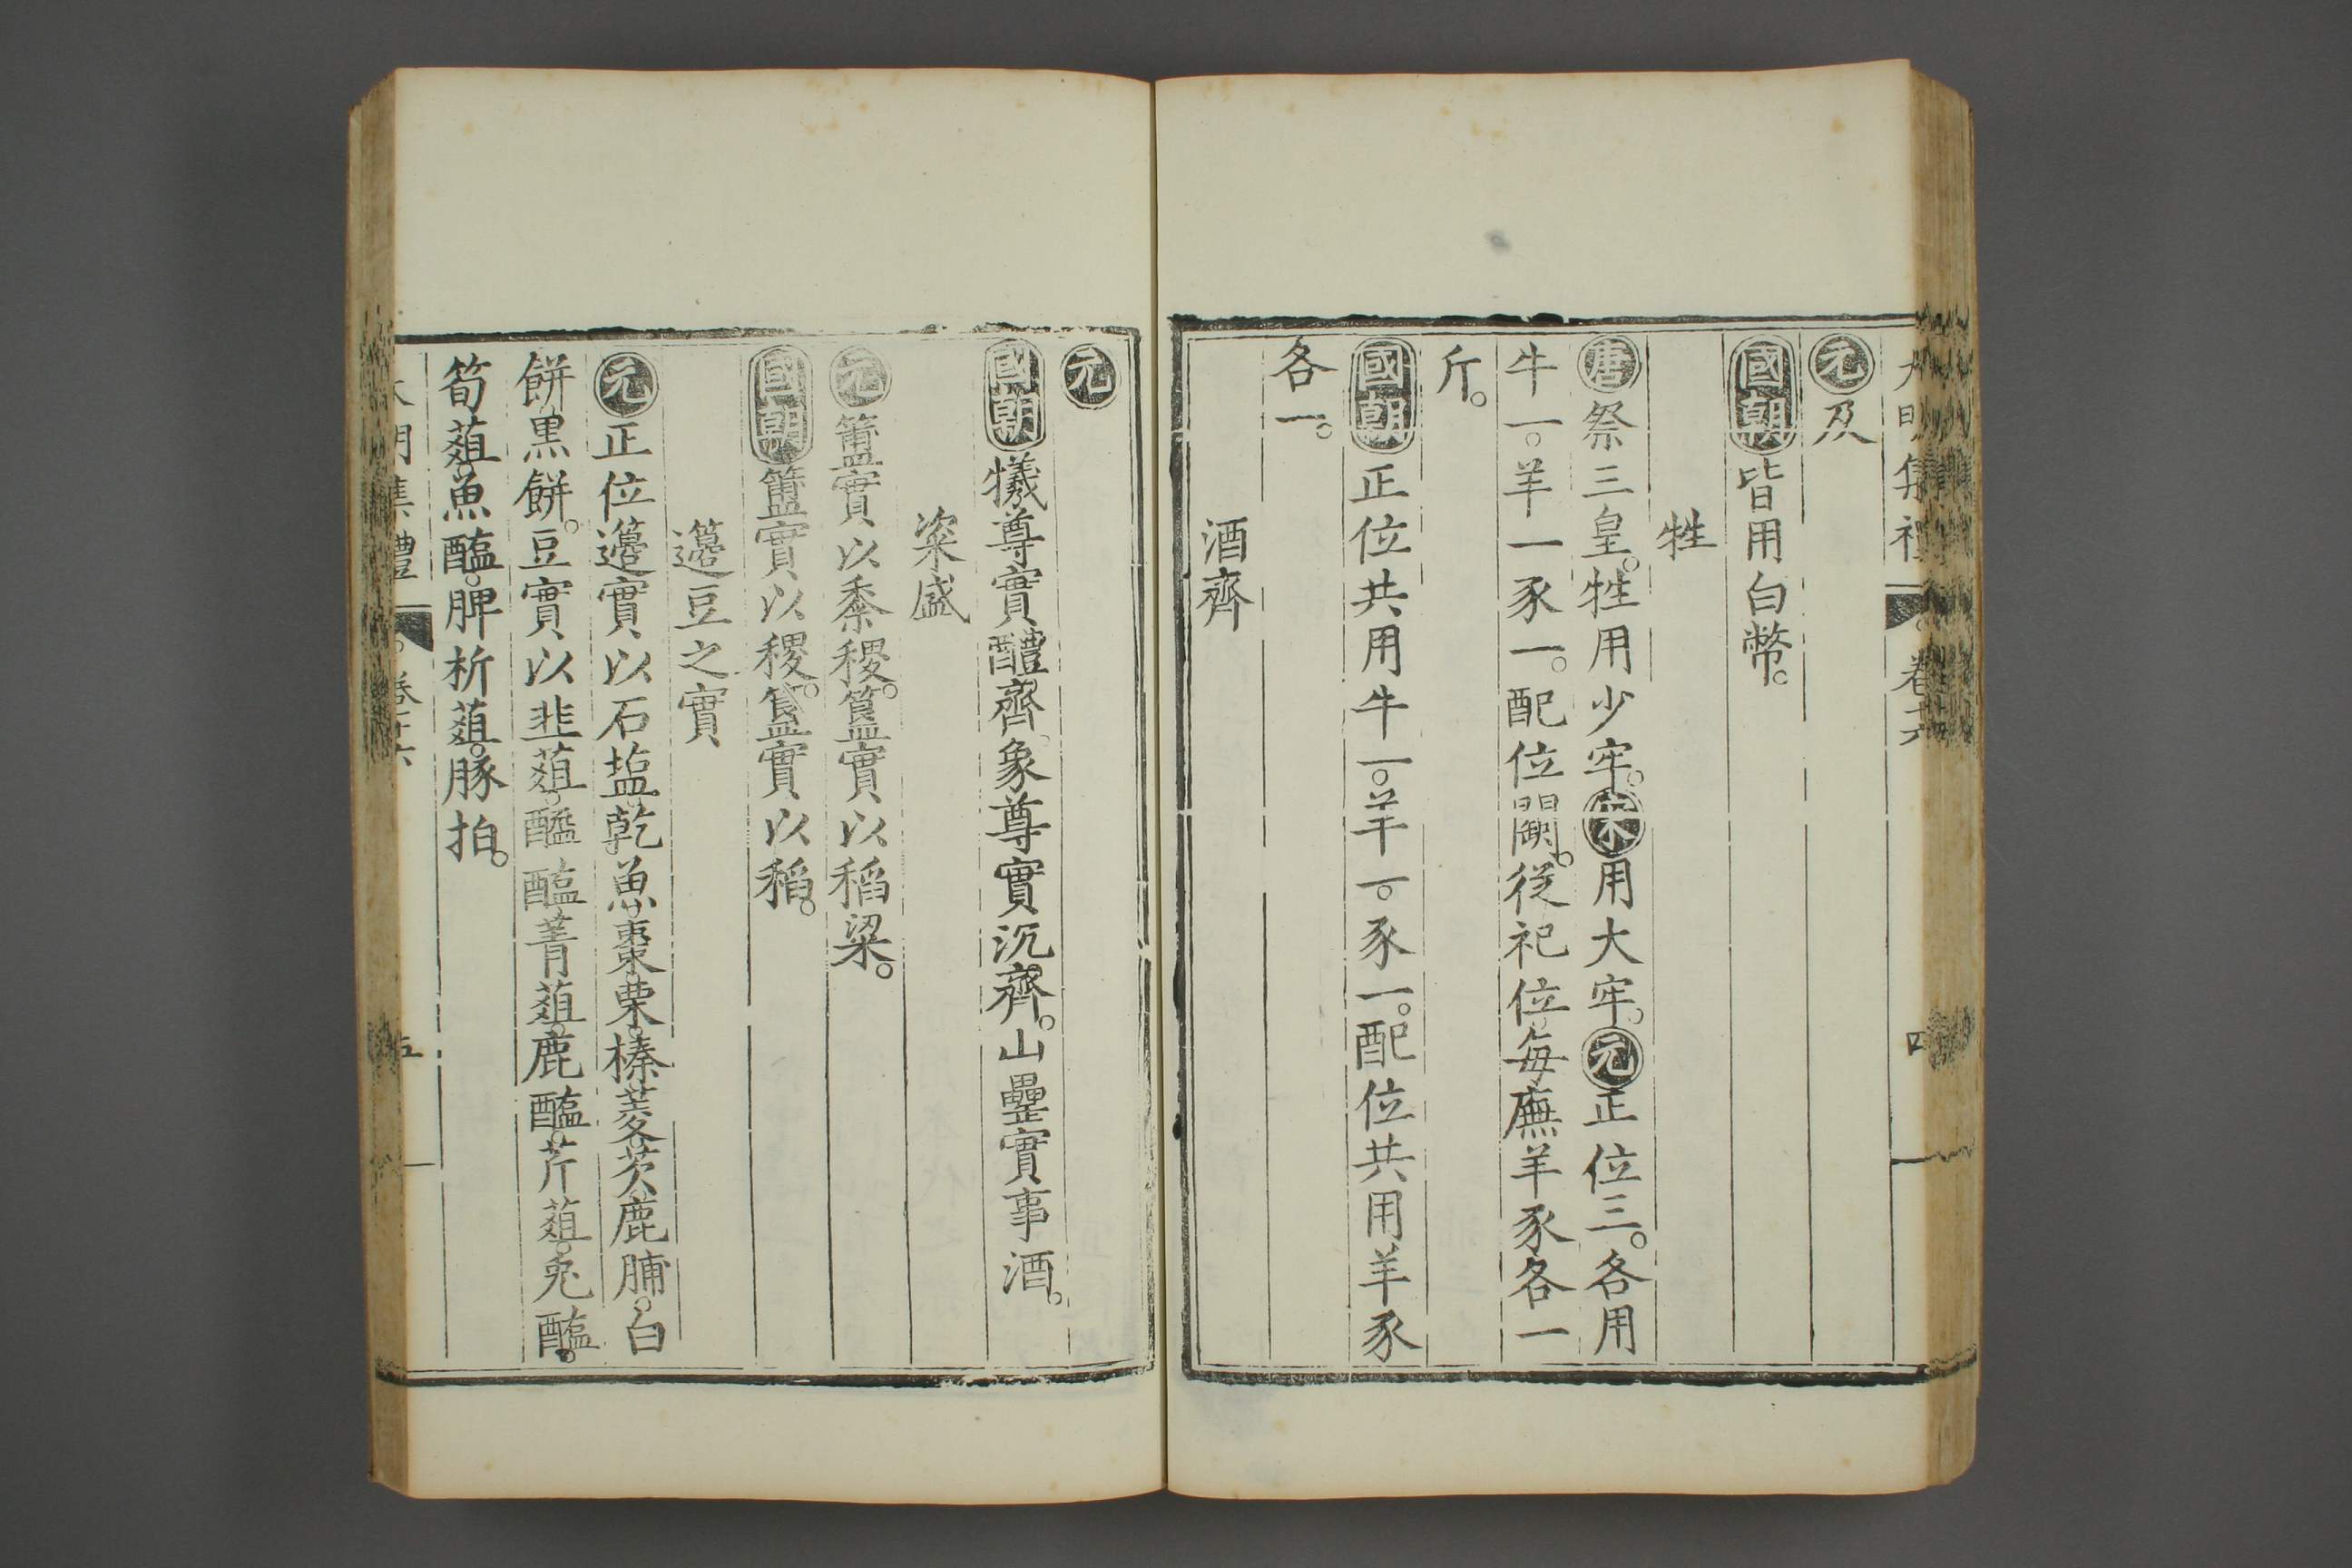 大明集禮 卷十六 四
元及
國朝皆用白幣。
牲
唐祭三皇。牲用少牢。宋用大牢。元正位三。各用
牛一。羊一豕一。配位闕。從祀位。每廡羊豕各一
斤。
國朝正位共用牛一。羊一。豕一。配位共用羊豕
各一。
酒齊
元
國朝犧尊實醴齊。象尊實沉齊。山罍實事酒。
粢盛
元簠實以黍稷。簋實以稻粱。
國朝簠實以稷。簋實以稻。
籩豆之實
元正位籩實以石塩。乾魚。棗。栗。榛。菱。芡。鹿脯。白
餅。黒餅。豆實以韭葅。醯醢。菁葅。鹿醢。芹葅。兔醢。
筍葅。魚醢。脾析葅。豚拍。
大明集禮 卷十六 五